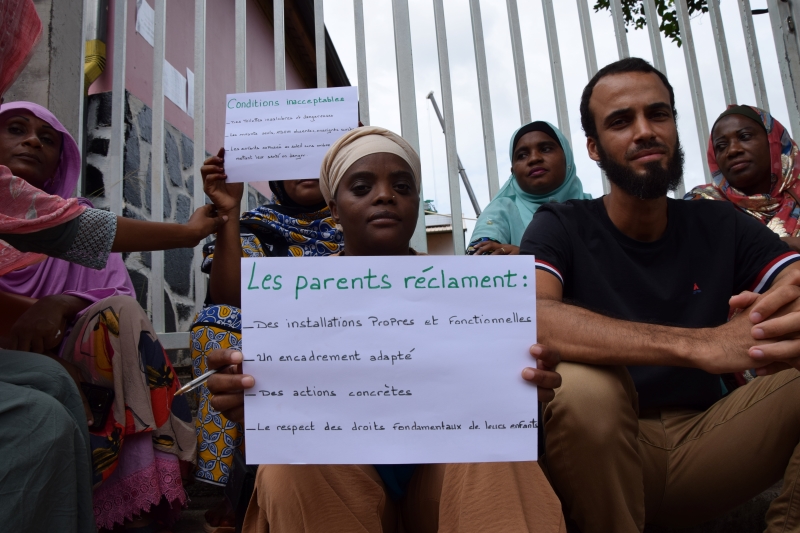 Conditions inacceptables
Les enfants
mettent leur santé en danger
Les parents réclament :
_ Des installations Propres et Fonctionnelles
_ Un encadrement adapté
_ Des actions concrètes
_ Le respect des droits fondamentaux de leurs enfants